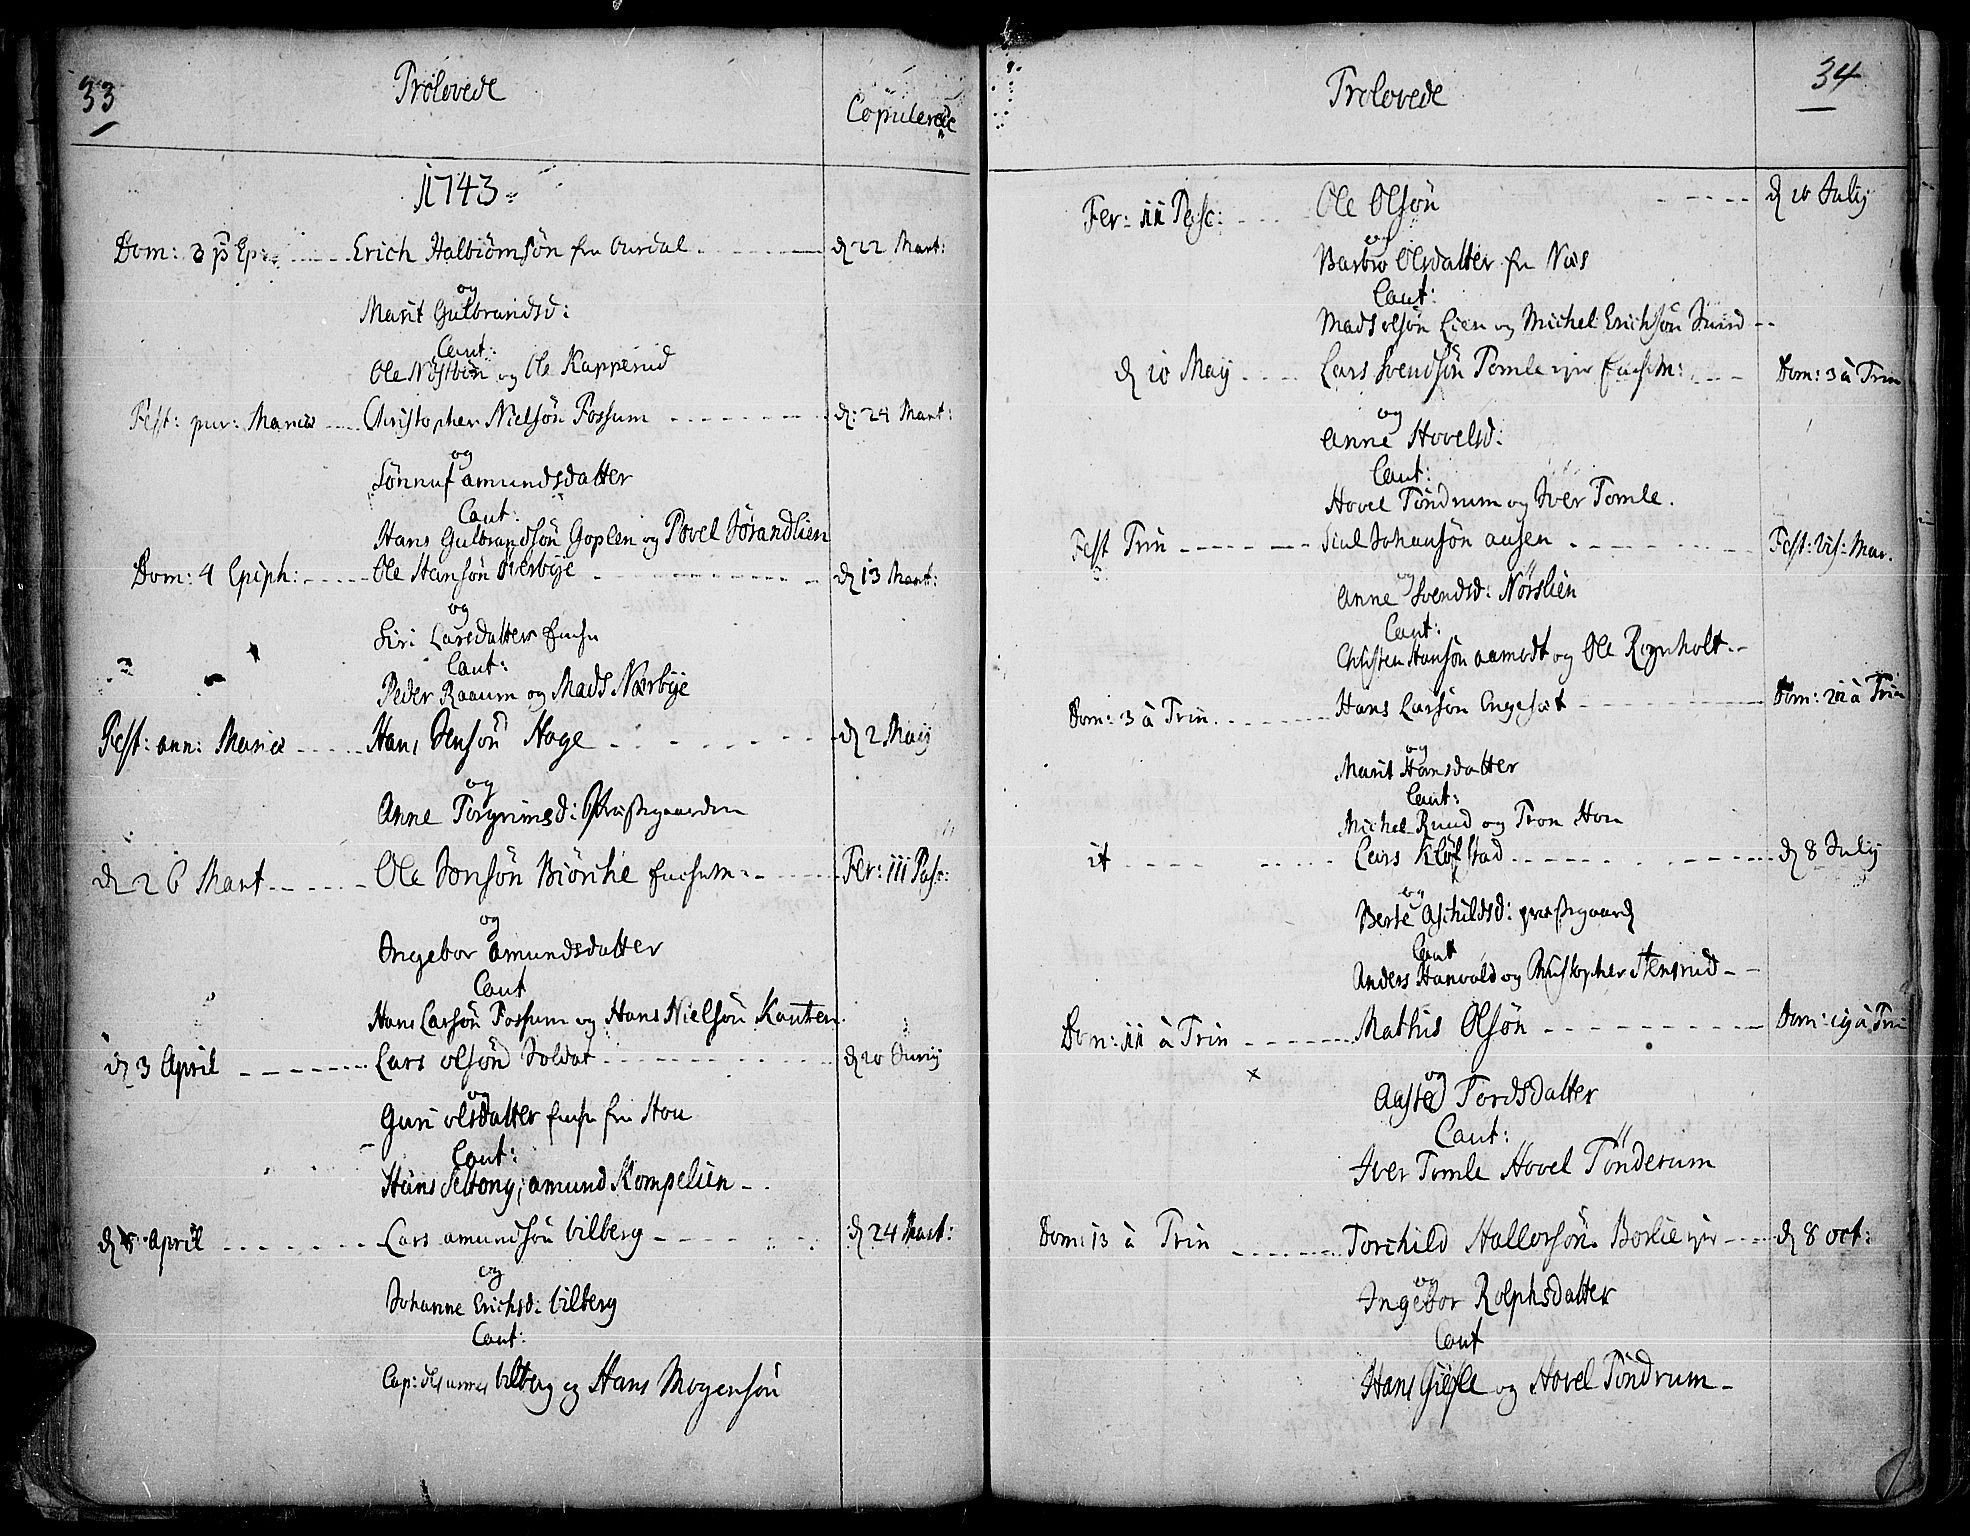 33
Trolovede
Copulerede
1743
Dom: 3 p Ep: Erich Halbiörnsön fra Ourdal d 22 Mart:
og
Marit Gulbrandsd:
Caut:
Ole Nöstbün og Ole Kapperud
Fest: pur: Mariæ Christopher Nielsön Fossum d: 24 Mart:
og
Sönnuf amundsdatter
Caut:
Hans Gulbrandsön Goplen og Povel Sörandlien
Dom: 4 Epiph: Ole Hansön Öferbÿe d 13 Mart:
og
Siri Larsdatter
Caut:
Peder Raaum og Mads Nærbÿe
Fest: ann: Mariæ Hans Jensön Hage d 2 Maij
og
Anne Torgrimsd: Præstegaarden
d 26 Mart Ole Jonsön Biörche Fer: III Pasc:
og
Ingebor amundsdatter
Caut
Hans Larsön Fossum og Hans Nielsön Kanten
d 3 April Lars olsön Soldat d 20 Junij
og
Guri olsdatter fra Hou
Caut:
Hans Seltong, amund Kompelien
d April Lars amundsön Vilberg d 24 Mart:
og
Johanne Erichsd: Vilberg
Caut:
Cap: Vilberg og Hans Mogensön
34
Trolovede
Fer: II Pasc: Ole Olsön d 20 Julij
og
Barbro Olsdatter fra Næs
Caut:
Mads olsön Lien og Michel Erichsön
d 10 Maij Lars Svendsön Tomle Dom: 3 à Trin
og
Anne Hovelsd:
Caut:
Hovel Töndrum og Iver Tomle.
Fest Trin Siul Johansön ausen Fest: Vis: Mar.
og
Anne Svendsd: Nörslien
Caut:
Christen Hansön aamodt og Ole Rognholt
Dom: 3 à Trin Hans Larsön Engesæt Dom: à Trin
og
Marit Hansdatter
Caut:
Michel Ruud og Tron Hou
it Lars Kløfstad d 8 Julij
og
Berte Aschildsd: præstegaard
Caut
Anders Hanvold og Christopher Stensrud
Dom: 11 à Trin Mathis Olsön Dom: 19 à Trin
og
Aaste Tordsdatter
Caut:
Iver Tomle Hovel Tönderum
Dom: 13 à Trin Torchild Hallorsön Borlie d 8 oct:
og
Ingebor Rolphsdatter
Caut
Hans Giefle og Hovel Töndrum